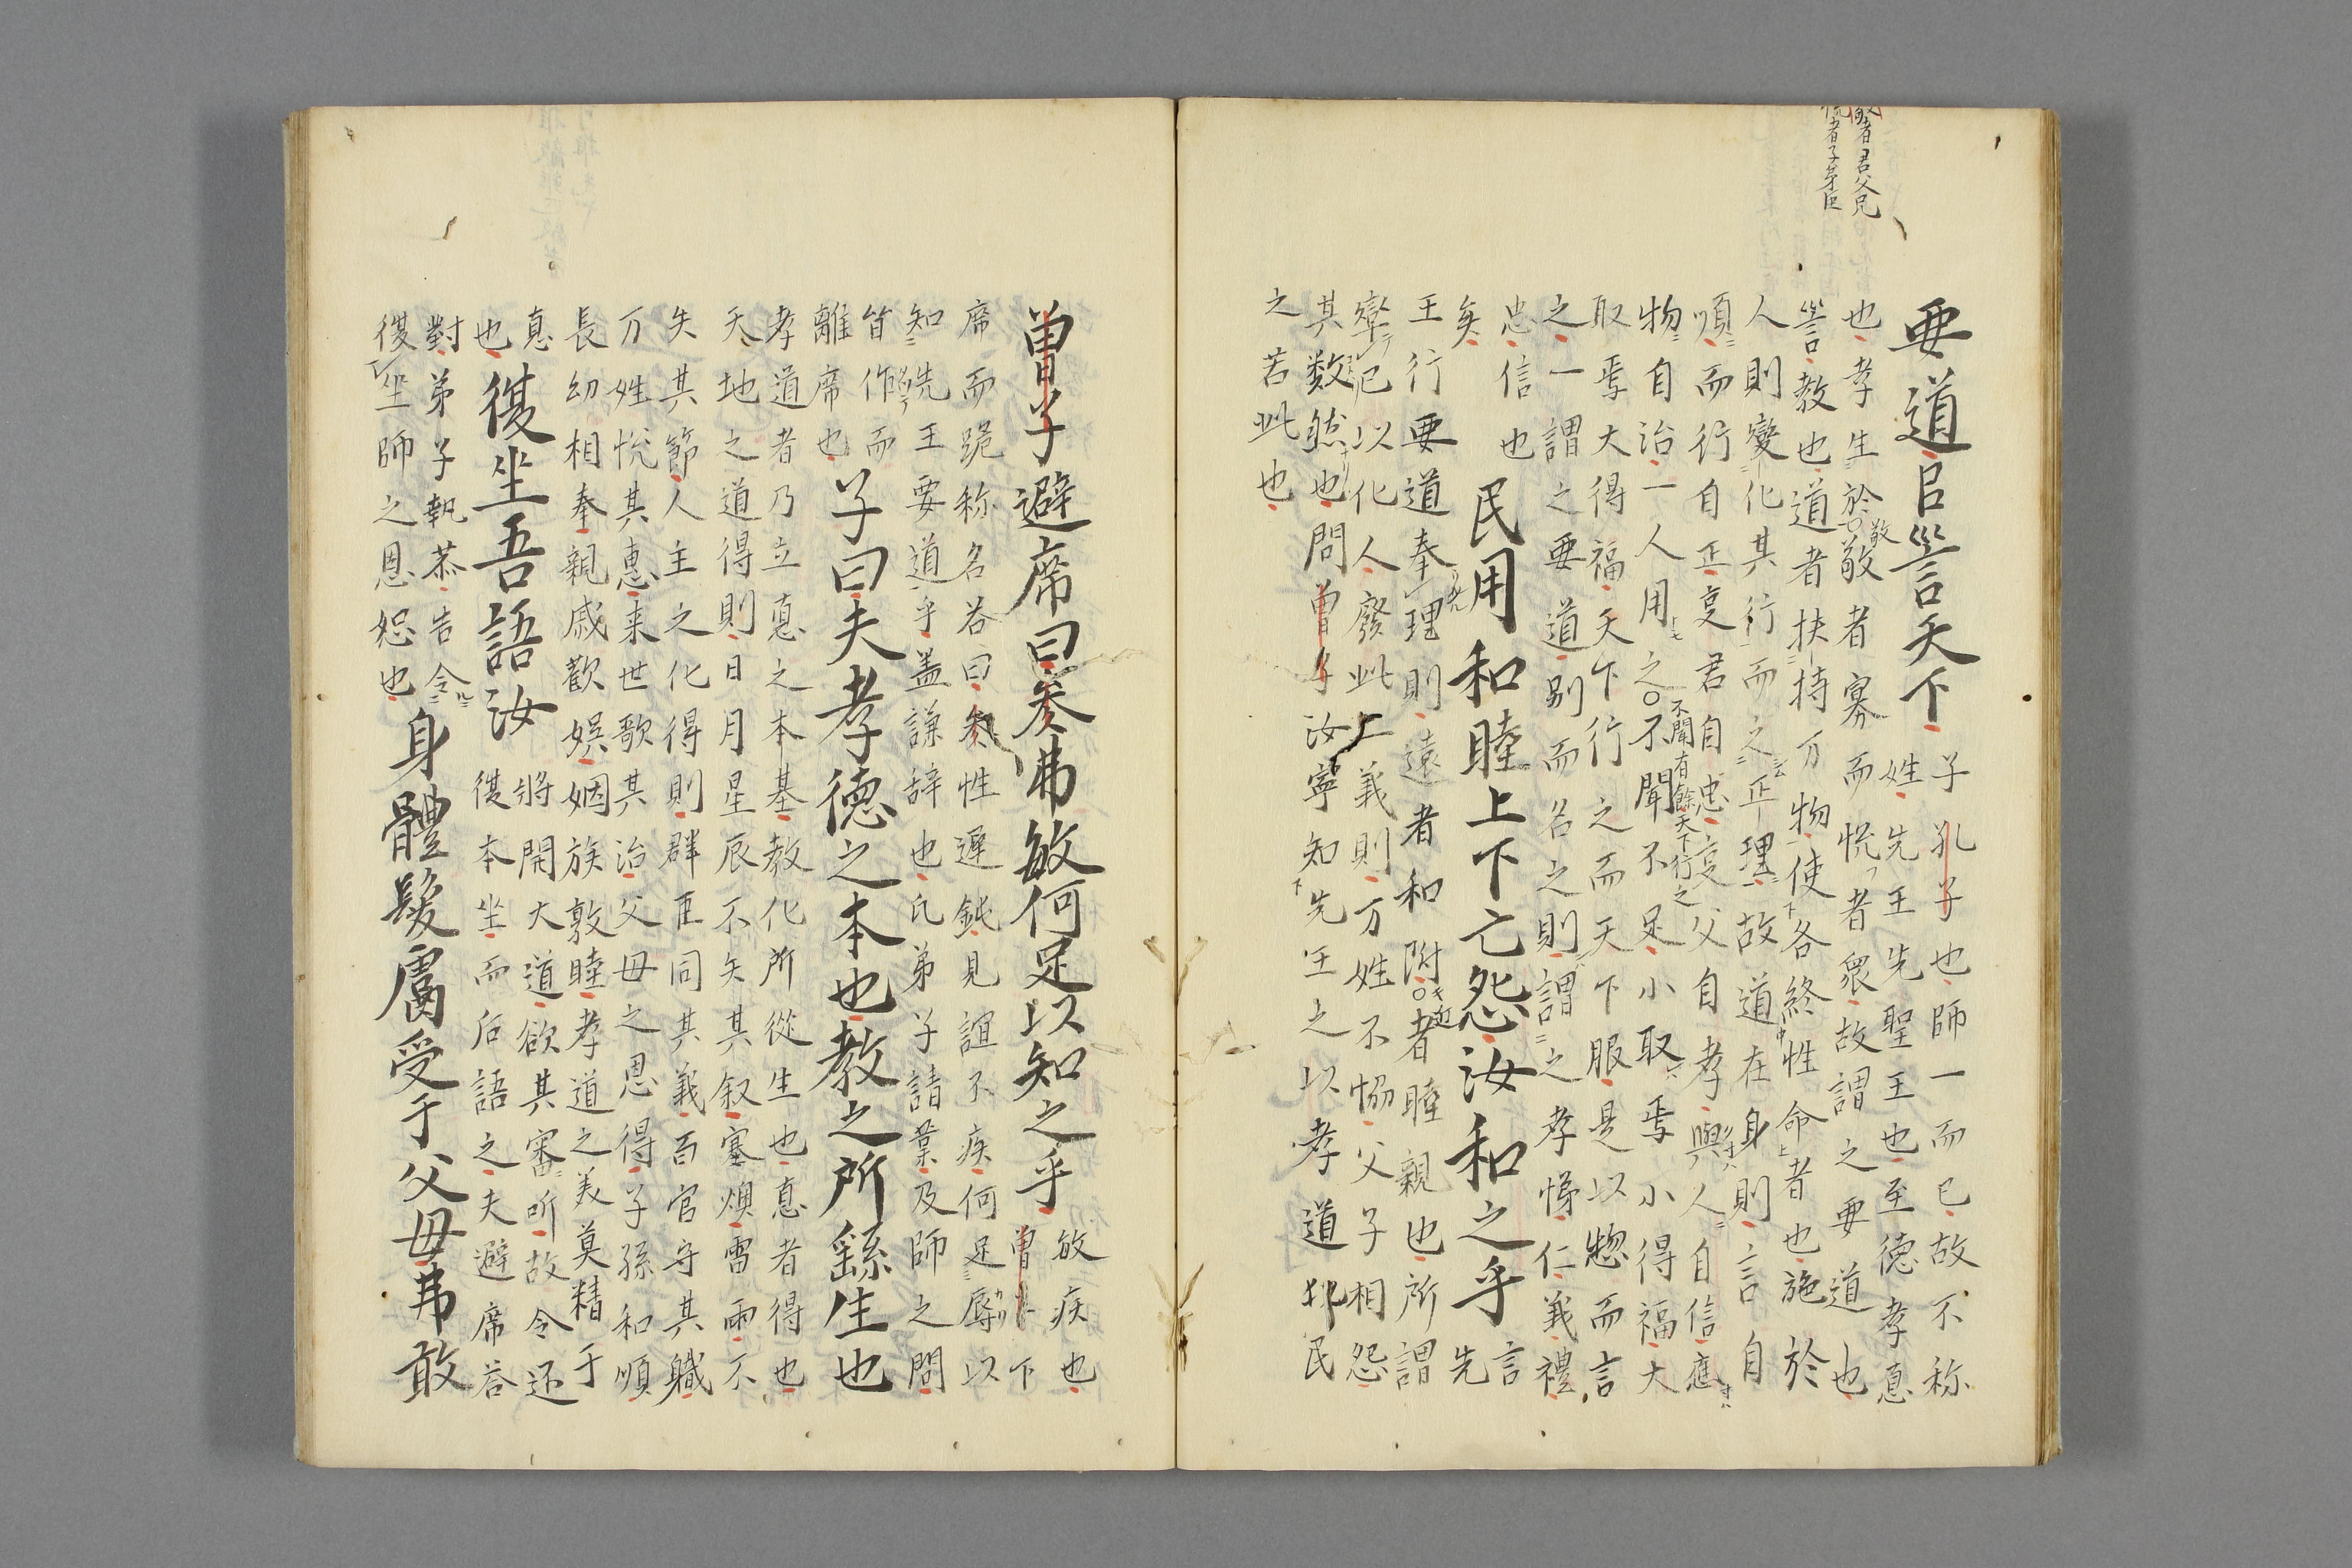 敏者君父兄
者子弟臣
要道㠯訓天下
子孔子也師一而已故不称
姓先王先聖王也至徳孝悳
也孝生於敬敬者寡而悦者衆故謂之要道也
訓教也道者扶持万物使各終性命者也施於
人則變化其行而之正理故道在身則言自
順而行自正㕝君自忠㕝父自孝與人自信應
物自治一人用之不聞有餘天下行之不聞不足小取焉小得福大
取焉大得福天下行之而天下服是以惣而言
之一謂之要道別而名之則謂之孝悌仁義禮
忠信也
民用和睦上下亡怨汝知之乎
言先
王行要道奉理則遠者和附近者睦親也所謂
率己以化人廢此二義則万姓不恊父子相怨
其数然也問曽子汝寧知先王之以孝道化民
之若此也
曽子避席曰参弗敏何足以知之乎
敏疾也
曽子下
席而跪称名荅曰参性遅鈍見誼不疾何足辱以
知先王要道乎盖謙辞也凢弟子請業及師之問
皆作而離席也
子曰夫孝徳之本也教之所繇生也
孝道者乃立悳之本基教化所從生也悳者得也
天地之道得則日月星辰不失其叙寒燠雷雨不
失其節人主之化得則群臣同其義百官守其職
万姓恱其惠来世歌其治父母之恩得子孫和順
長幼相奉親戚歡娯姻族敦睦孝道之美莫精于
悳也
復坐吾語汝
将開大道欲其審听故令还
復本坐而后語之夫避席荅
對弟子執恭告令
復坐師之恩恕也
身體髪膚受于父母弗敢